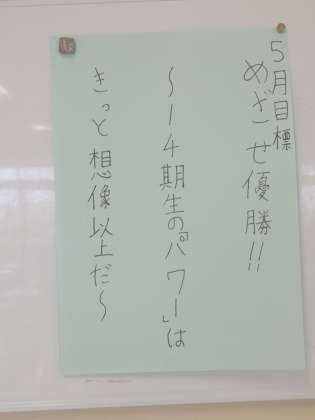 5月目標
めざせ優勝!!
〜14期生の『パワー』は
きっと想像以上だ〜